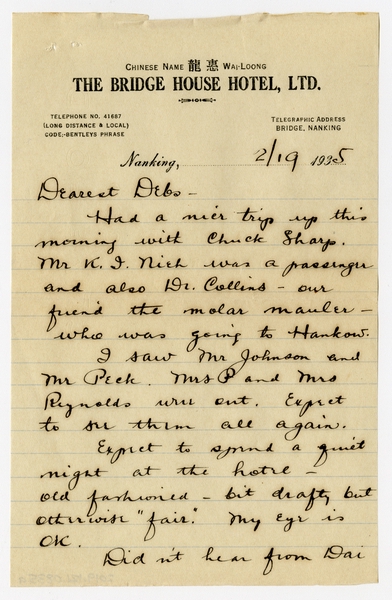 CHINESE NAME 龍 惠 WAI-LOONG
THE BRIDGE HOUSE HOTEL, LTD.
TELEPHONE NO. 41687
(LONG DISTANCE & LOCAL)
CODE:-BENTLEYS PHRASE
TELEGRAPHIC ADDRESS
BRIDGE, NANKING
Nanking, 2/19 1935
Dearest Debs -
Had a nice trip up this
morning with Chuck Sharp.
Mr K. I. Nieh was a passenger
and also Dr. Collins - our
friend the molar mauler -
who was going to Hankow.
I saw Mr Johnson and
Mr Peck. Mrs P and Mrs
Reynolds were out. Expect
to see them all again.
Expect to spend a quiet
night at the hotel -
old fashioned - bit drafty but
otherwise "fair." My eye is
OK.
Did n't hear from Dai